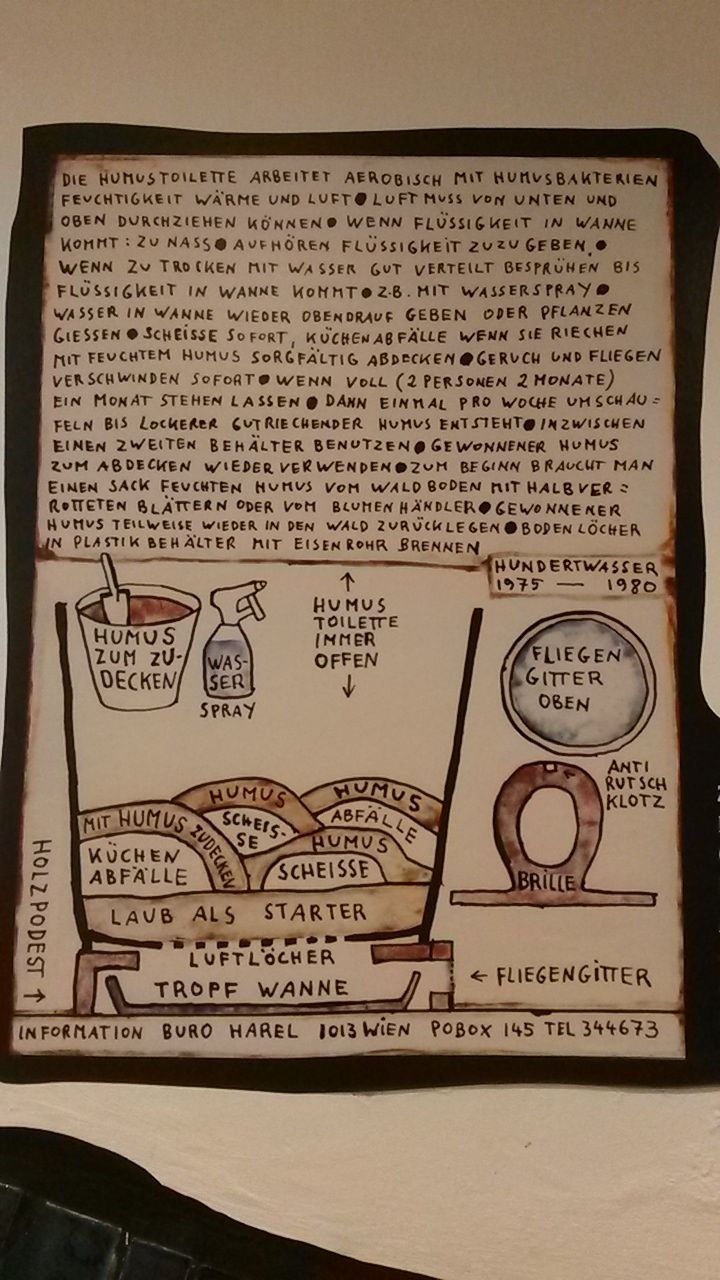 DIE HUMUSTOILETTE ARBEITET AEROBISCH MIT HUMUSBAKTERIEN
FEUCHTIGKEIT WÄRME UND LUFT ● LUFT MUSS VON UNTEN UND
OBEN DURCHZIEHEN KÖNNEN ● WENN FLÜSSIGKEIT IN WANNE
KOMMT: ZU NASS ● AUFHÖREN FLÜSSIGKEIT ZUZUGEBEN. ●
WENN ZU TROCKEN MIT WASSER GUT VERTEILT BESPRÜHEN BIS
FLÜSSIGKEIT IN WANNE KOMMT ● Z.B. MIT WASSERSPRAY ●
WASSER IN WANNE WIEDER OBENDRAUF GEBEN ODER PFLANZEN
GIESSEN ● SCHEISSE SOFORT, KÜCHENABFÄLLE WENN SIE RIECHEN
MIT FEUCHTEM HUMUS SORGFÄLTIG ABDECKEN ● GERUCH UND FLIEGEN
VERSCHWINDEN SOFORT ● WENN VOLL (2 PERSONEN 2 MONATE)
EIN MONAT STEHEN LASSEN ● DANN EINMAL PRO WOCHE UMSCHAU=
FELN BIS LOCKERER GUTRIECHENDER HUMUS ENTSTEHT ● INZWISCHEN
EINEN ZWEITEN BEHÄLTER BENUTZEN ● GEWONNENER HUMUS
ZUM ABDECKEN WIEDER VERWENDEN ● ZUM BEGINN BRAUCHT MAN
EINEN SACK FEUCHTEN HUMUS VOM WALDBODEN MIT HALBVER=
ROTTETEN BLÄTTERN ODER VOM BLUMENHÄNDLER ● GEWONNENER
HUMUS TEILWEISE WIEDER IN DEN WALD ZURÜCKLEGEN ● BODENLÖCHER
IN PLASTIKBEHÄLTER MIT EISENROHR BRENNEN
HUNDERTWASSER
1975 — 1980
HUMUS
ZUM ZU-
DECKEN
WAS-
SER
SPRAY
↑
HUMUS
TOILETTE
IMMER
OFFEN
↓
FLIEGEN
GITTER
OBEN
ANTI
RUTSCH
KLOTZ
BRILLE
HUMUS
SCHEIS-
SE
HUMUS
ABFÄLLE
MIT HUMUS ZUDECKEN
KÜCHEN
ABFÄLLE
HUMUS
SCHEISSE
LAUB ALS STARTER
HOLZPODEST →
LUFTLÖCHER
TROPF WANNE
← FLIEGENGITTER
INFORMATION BURO HAREL 1013 WIEN POBOX 145 TEL 344673